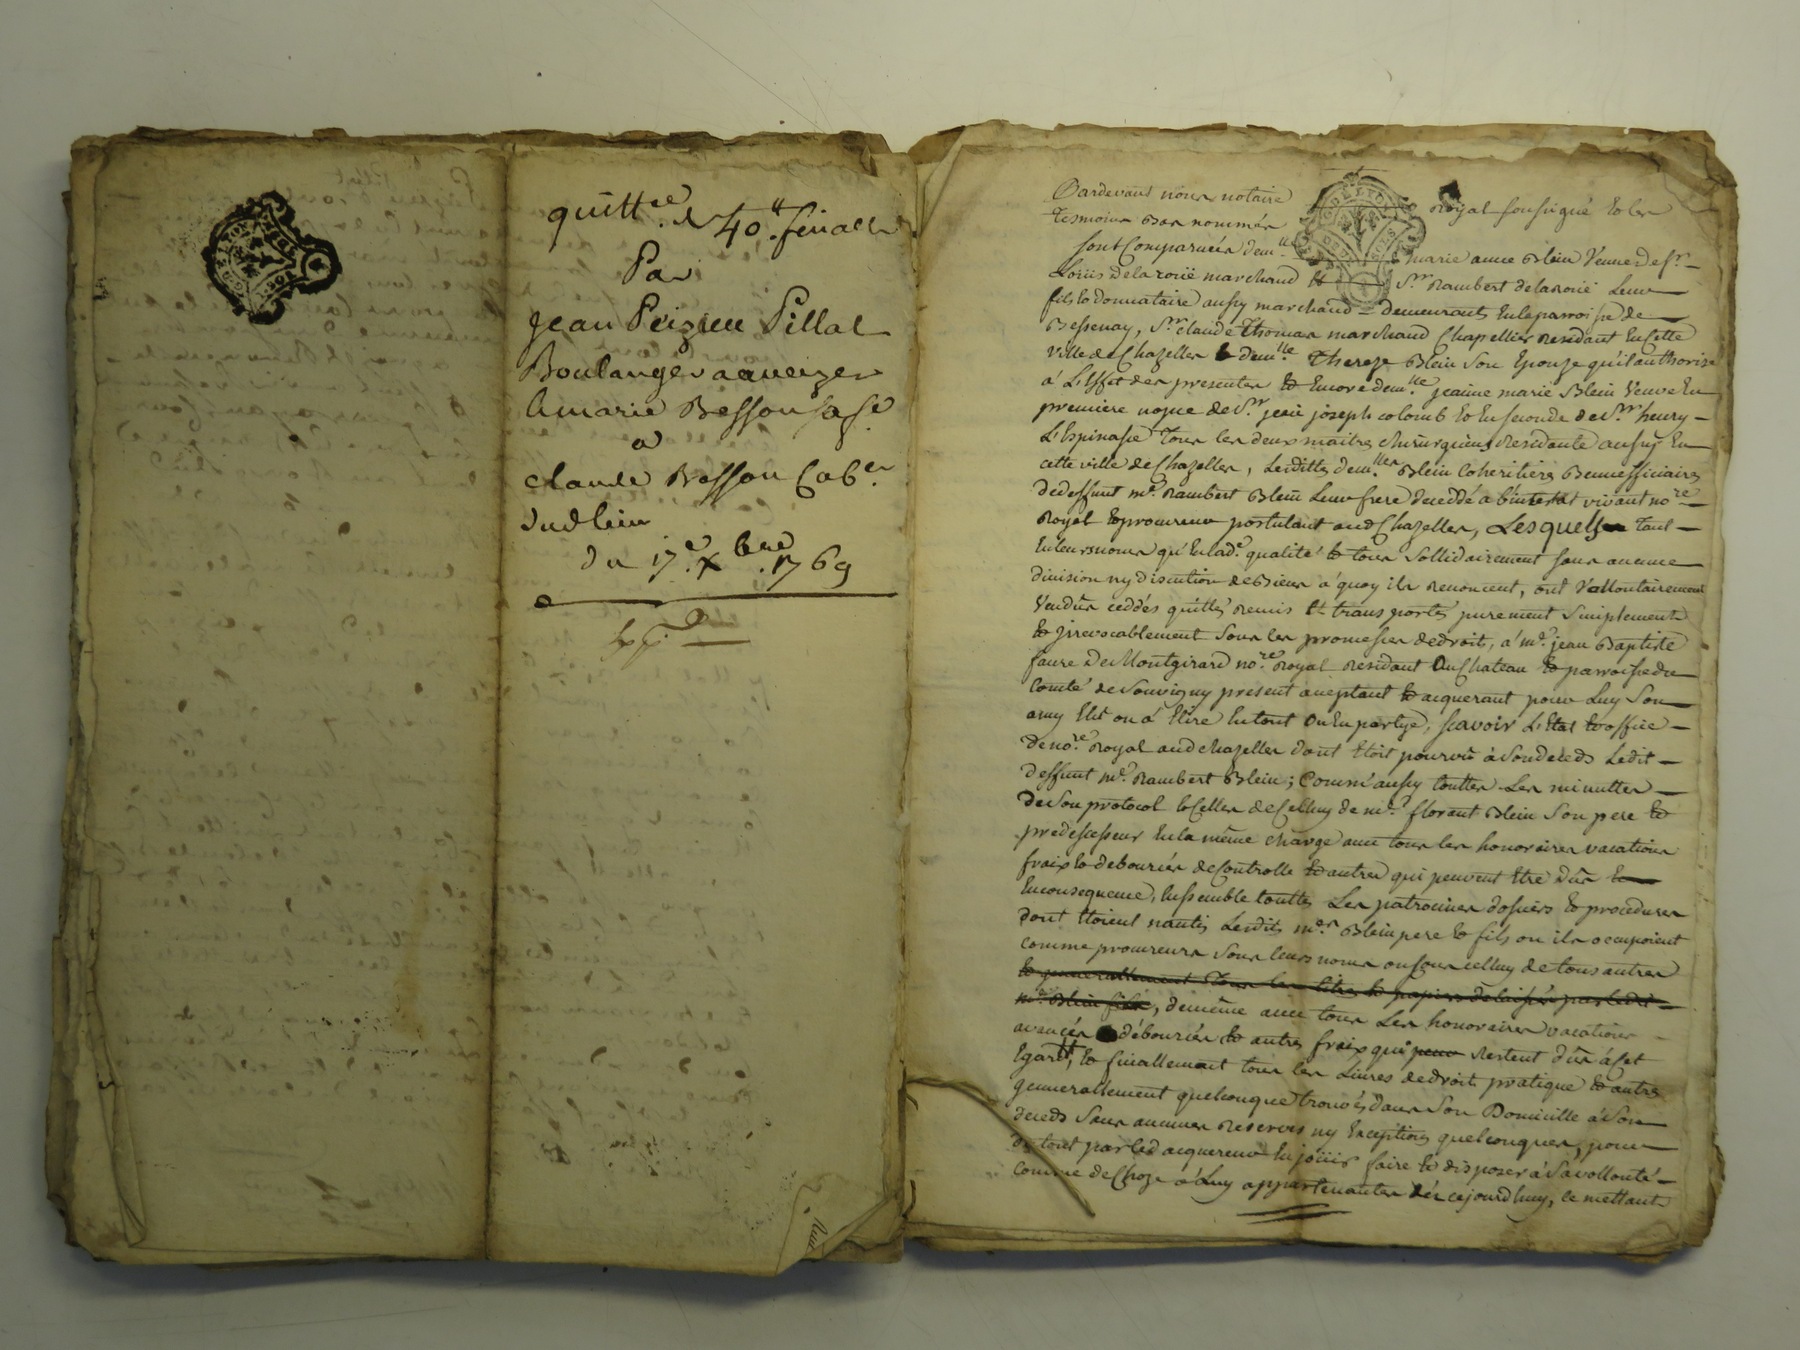 quittce. de 40 ₶. finalle
Par
Jean Peizieu Pillat
Boulanger a aveizes
& marie Besson sa fe.
a
claude Besson Cabr.
dud lieu
du 17e. Xbre. 1769
Pardevant nous notaire royal soussigné et les
tesmoins bas nommés
sont Comparuës demlle. marie anne Blein Veuve de sr.
Loüis delaroüe marchand et Sr. Rambert delaroüe Leur
fils et donnataire aussy marchand demeurants en la parroisse de
Bessenay, Sr. claude Thomas marchand Chapellier residant En Cette
ville de Chazelles & demlle. Thereze Blein Son Epouze qu'il authorize
á L'Effet des presentes et Encore demlle. jeanne marie Blein Veuve En
premiere nopce de Sr. jean joseph colomb et En seconde de Sr. henry
L'Espinasse Tous les deux maitres chirurgiens Residante aussy En
cette ville de Chazelles, Lesdittes demlles. Blein Coheritieres Benneficiaires
de deffunt me. Rambert Blein Leur frere decedé ab intestat vivant nore.
Royal et procureur postulant aud Chazelles, Lesquels Tant
En leurs noms qu'En lade. qualité et tous Sollidairement sans aucune
division ny discution de Biens a quoy ils renoncent, ont Vollontairement
Vendus ceddés quittés remis et transportés purement Simplement
et jrrevocablement Sous les promesses de droit, á me. jean Baptiste
faure De Montgirard nore. Royal Residant Au Chateau et parroisse du
Comté de Souvigny present acceptant et acquerant pour Luy Son
amy Elit ou á Elire En tout ou En partye, scavoir L'Etat et office
de nore. Royal aud chazelles dont Etoit pourvû à Son deceds Ledit
deffunt me. Rambert Blein; Comm'aussy touttes Les minuttes
de Son protocol et Celles de Celluy de me. florant Blein Son pere et
predecesseur En la même charge avec tous les honoraires vacations
fraix et deboursés de Controlle et autres qui peuvent Etre dûs
En consequence, Enssemble touttes Les patrocines dossiers et procedures
dont Etoient nantis Lesdits mes. Blein pere et fils ou ils occupoient
comme procureurs Sous leurs noms ou sous celluy de tous autres
et generallement Tous les titres et papiers delaissés par ledit
me. Blein fils, de même avec tous Les honoraires vacations
avances déboursés et autres fraix qui peuv Restent dûs á Cet
Egard, et finallement tous les Livres de droit pratique et autres
gennerallement quelconque trouvés dans Son Domicille á Son
deceds Sans aucunes Reserves ny Exceptions quelconques, pour
du tout par led acquereur En joüir faire et disposer á Sa vollonté
comme de Choze á Luy appartenantes dés cejourd'huy, le mettant